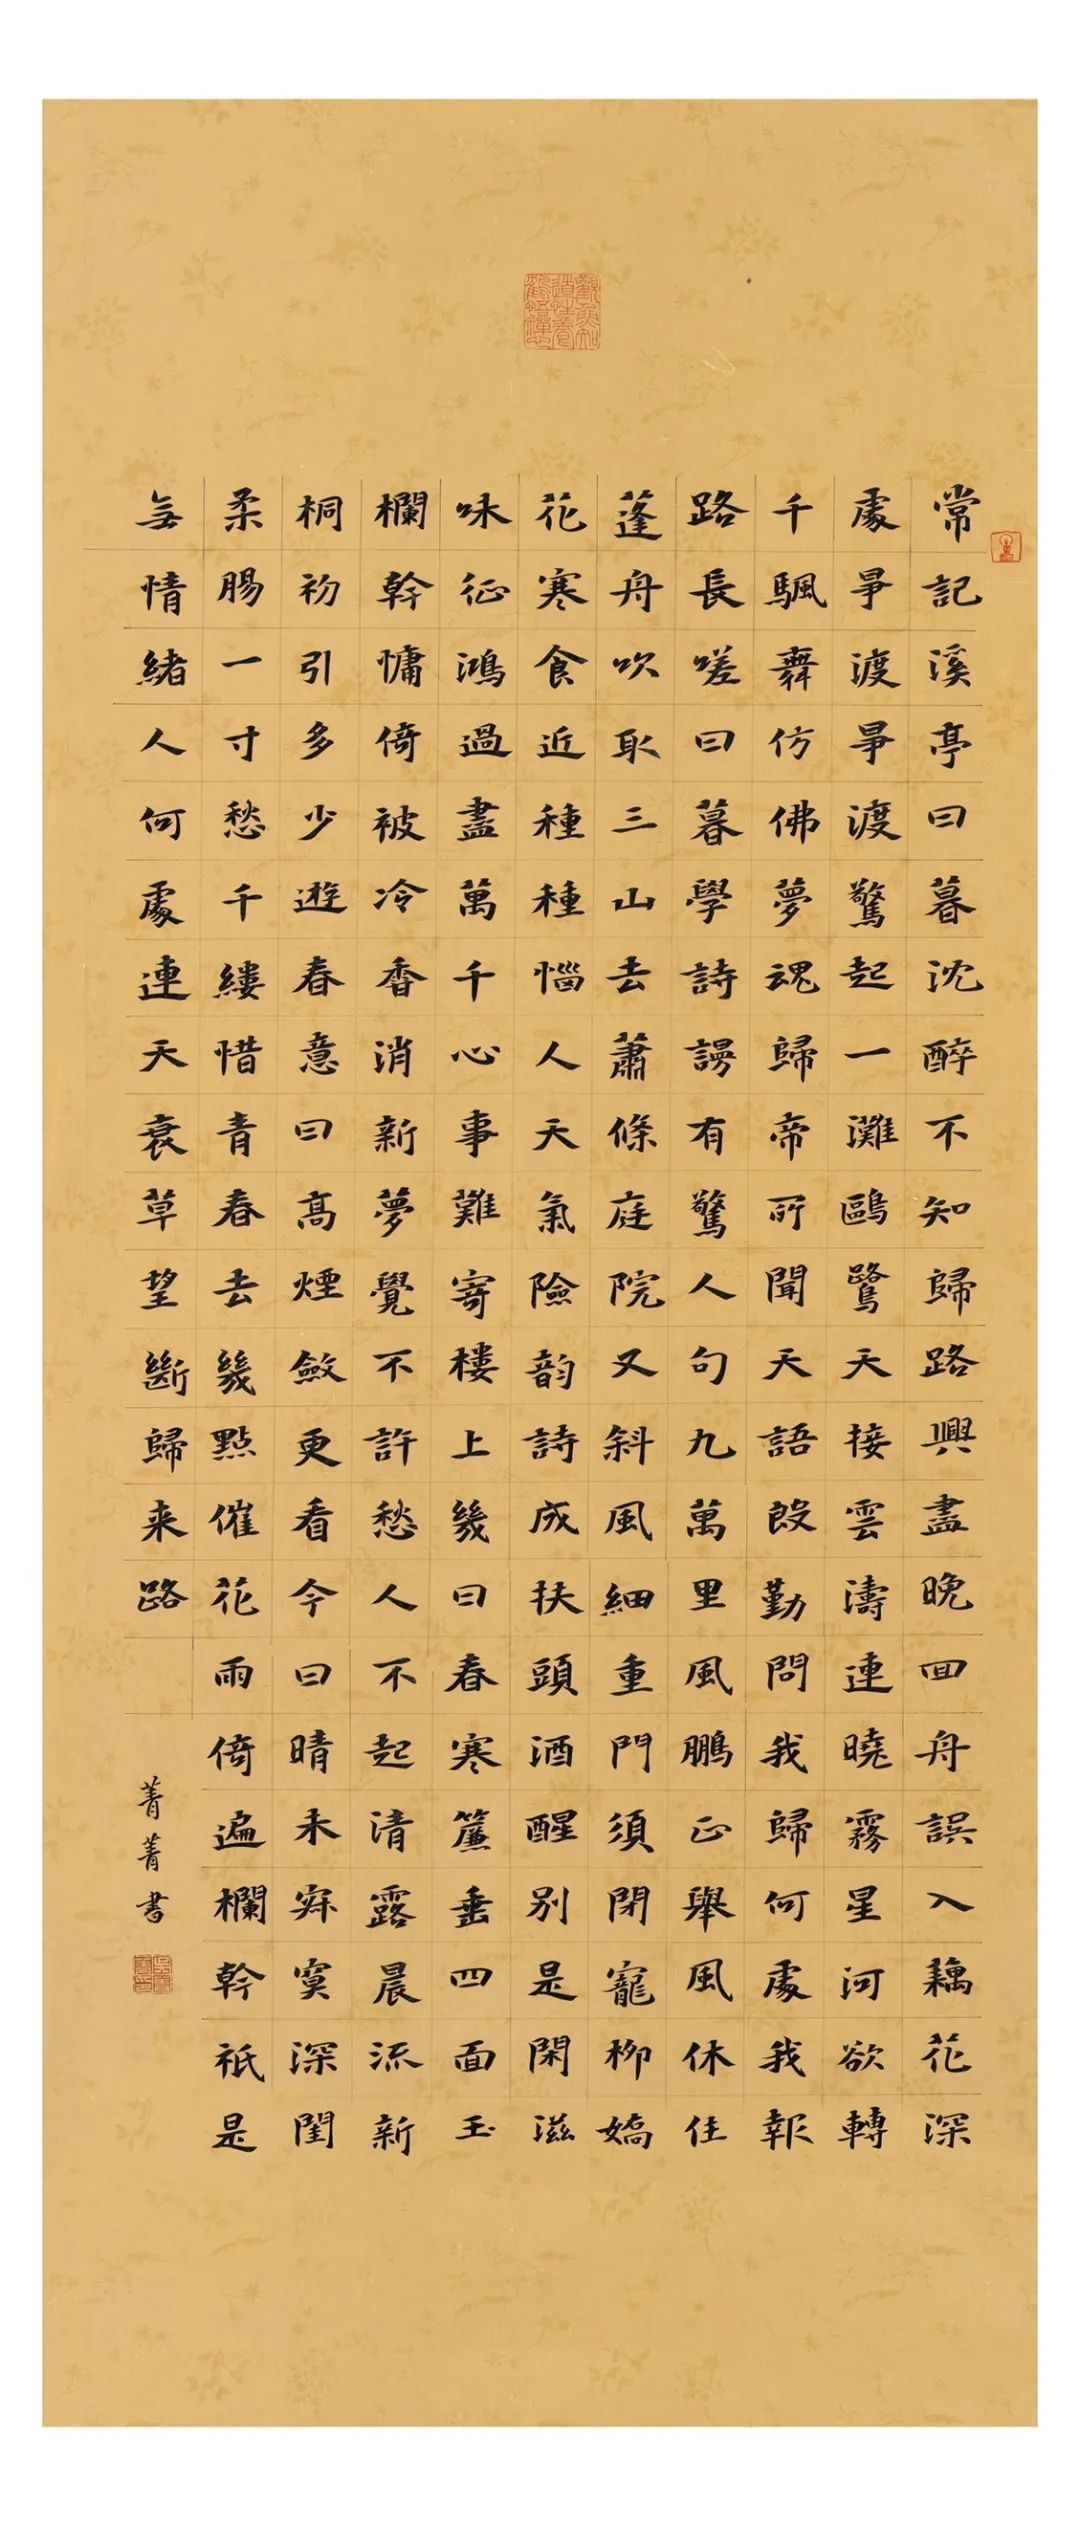 常記溪亭日暮沈醉不知歸路興盡晚回舟誤入藕花深
處爭渡爭渡驚起一灘鷗鷺天接雲濤連曉霧星河欲轉
千颿舞仿佛夢魂歸帝所聞天語殷勤問我歸何處我報
路長嗟日暮學詩謾有驚人句九萬里風鵬正舉風休住
蓬舟吹取三山去蕭條庭院又斜風細重門須閉寵柳嬌
花寒食近種種惱人天氣險韵詩成扶頭酒醒别是閑滋
味征鴻過盡萬千心事難寄樓上幾日春寒簾垂四面玉
欄幹慵倚被冷香消新夢覺不許愁人不起清露晨流新
桐初引多少遊春意日高煙斂更看今日晴未寂寞深閨
柔腸一寸愁千縷惜青春去幾點催花雨倚遍欄幹祇是
無情緒人何處連天衰草望斷歸来路
菁菁書